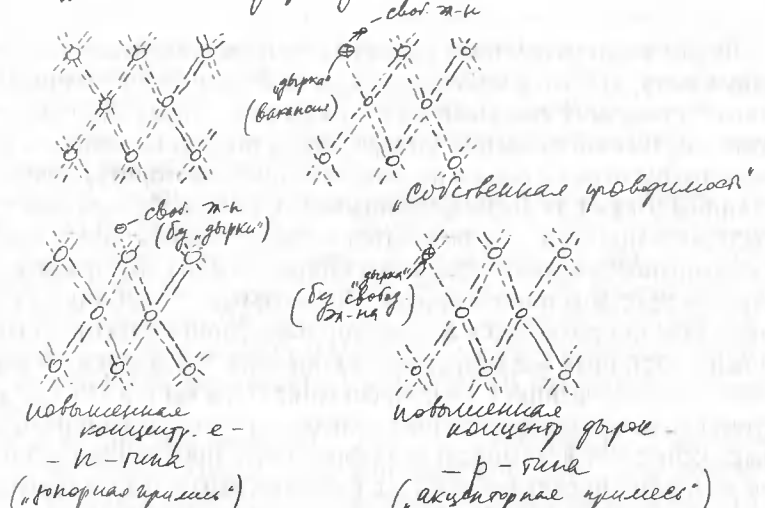 своб. эл-н
"дырка"
(вакансия)
"Собственная проводимость"
своб. эл-н
(б/у "дырки")
"дырка"
(б/у свобод.
эл-на)
повышенная
концентр. e -
- n - типа
("донорная примесь")
повышенная
концентр дырок -
- p - типа
("акцепторная примесь")